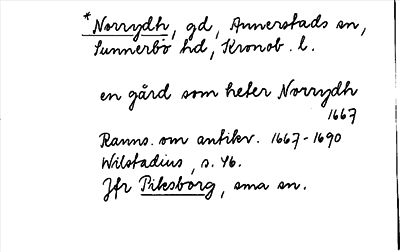 *Norrydh, gd, Annerstads sn,
Sunnerbo hd, Kronob. l.
en gård som heter Norrydh
1667
Ranns. om antikv. 1667-1690
Wilstadius, s. 46.
Jfr Piksborg, sma sn.